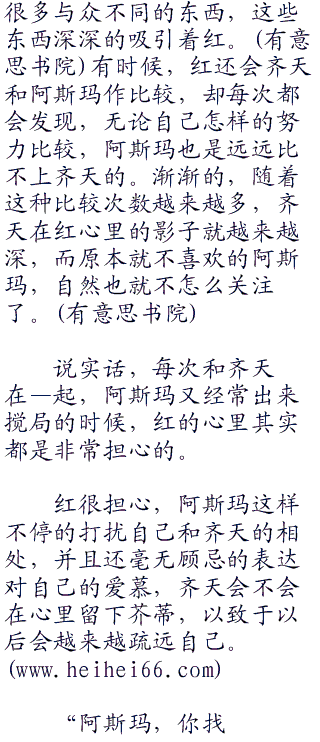 很多与众不同的东西，这些
东西深深的吸引着红。(有意
思书院)有时候，红还会齐天
和阿斯玛作比较，却每次都
会发现，无论自己怎样的努
力比较，阿斯玛也是远远比
不上齐天的。渐渐的，随着
这种比较次数越来越多，齐
天在红心里的影子就越来越
深，而原本就不喜欢的阿斯
玛，自然也就不怎么关注
了。(有意思书院)
说实话，每次和齐天
在一起，阿斯玛又经常出来
搅局的时候，红的心里其实
都是非常担心的。
红很担心，阿斯玛这样
不停的打扰自己和齐天的相
处，并且还毫无顾忌的表达
对自己的爱慕，齐天会不会
在心里留下芥蒂，以致于以
后会越来越疏远自己。
(www.heihei66.com)
“阿斯玛，你找